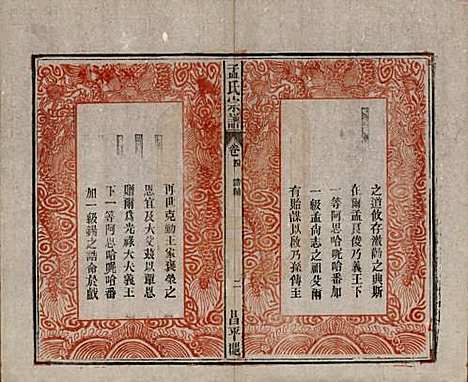 之道攸存激勸之典斯
在爾孟良俊乃義王下
一等阿思哈呢哈番加
一級孟尚志之祖父爾
有貽謀以啟乃孫傳主
孟氏宗譜
卷四
二
昌平
再世克勤王家褒榮之
恩宜及大父茲以覃恩
贈爾爲光祿大夫義王
下一等阿思哈呢哈番
加一級錫之誥命於戲